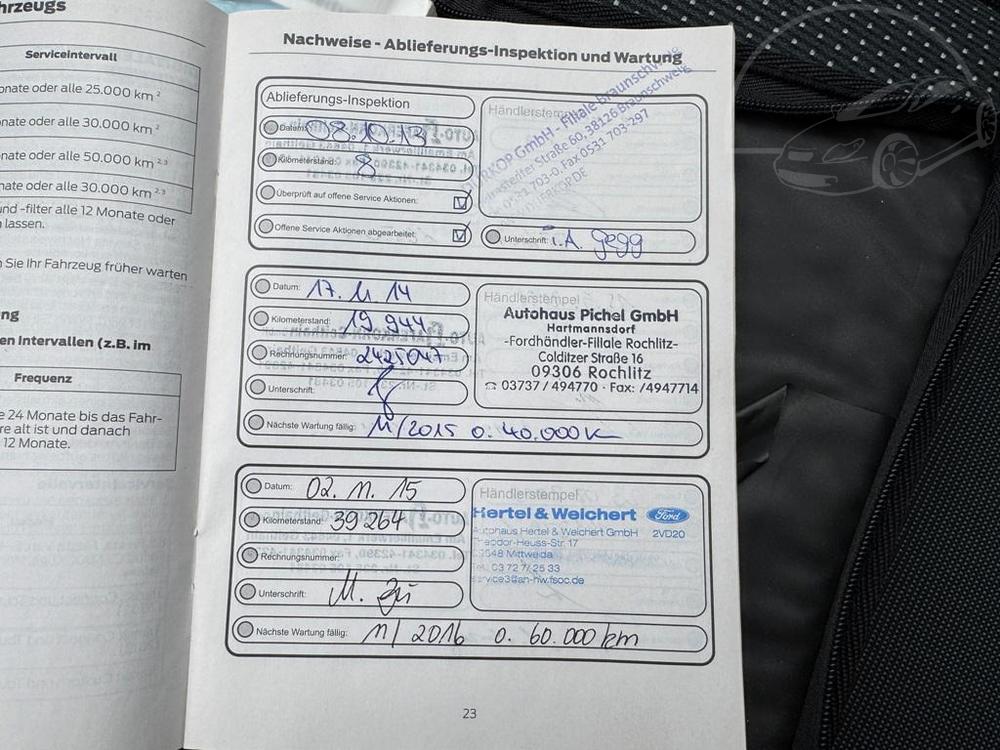 hrzeugs
Serviceintervall
onate oder alle 25.000 km ²
nate oder alle 30.000 km ²
nate oder alle 50.000 km ²·³
nate oder alle 30.000 km ²·³
und -filter alle 12 Monate oder
lassen.
Sie Ihr Fahrzeug früher warten
ng
en Intervallen (z.B. im
Frequenz
e 24 Monate bis das Fahr-
re alt ist und danach
12 Monate.
Nachweise - Ablieferungs-Inspektion und Wartung
Ablieferungs-Inspektion
Händlerstempel
GmbH - Filiale Braunschweig
Straße 60, 38126 Braunschweig
703-0, Fax 0531 703-297
Datum: 08.10.13
Kilometerstand: 8
Überprüft auf offene Service Aktionen:
Offene Service Aktionen abgearbeitet:
Unterschrift: i.A. gegg
Datum: 17. 11 14
Kilometerstand: 19 944
Rechnungsnummer: 2425047
Unterschrift:
Händlerstempel
Autohaus Pichel GmbH
Hartmannsdorf
-Fordhändler-Filiale Rochlitz-
Colditzer Straße 16
09306 Rochlitz
☎ 03737 / 494770 · Fax: /4947714
Nächste Wartung fällig: 11/2015 o. 40.000 K
Datum: 02. 11. 15
Kilometerstand: 39 264
Rechnungsnummer:
Unterschrift: M.
Händlerstempel
Hertel & Weichert Ford
Autohaus Hertel & Weichert GmbH 2VD20
Theodor-Heuss-Str. 17
09648 Mittweida
Tel. 03 72 7/ 25 33
service3@an-hw.fsoc.de
Nächste Wartung fällig: 11/ 2016 o. 60.000 km
23